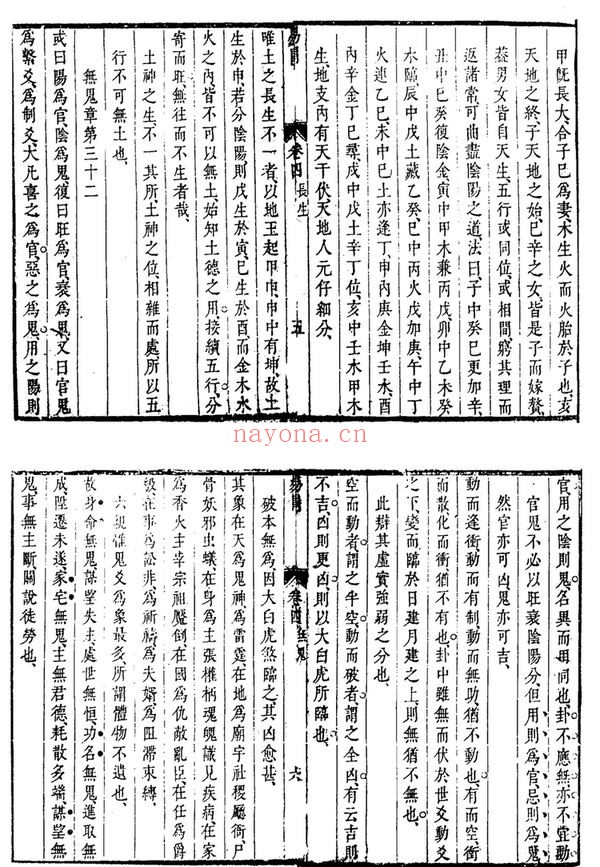 甲旣長大合子巳爲妻木生火而火胎於子也亥
天地之終子天地之始巳辛之女皆是子而嫁贅
蓋男女皆自天生五行或同位或相間窮其理而
返諸常可曲盡陰陽之道法曰子中癸巳更加辛
丑中巳癸復陰金寅中甲木兼丙戊卯中乙未癸
水臨辰中戊土藏乙癸巳中丙火戊加庚午中丁
火連乙巳未中巳土亦逢丁申內庚金坤壬水酉
內辛金丁巳尋戌中戊土辛丁位亥中壬木甲木
生地支內有天干伏天地人元仔細分
易冐 卷四 長生 五
唯土之長生不一者以地王起甲申申中有坤故土
生於申若分陰陽則戊生於寅巳生於酉而金木水
火之內皆不可以無土始知土德之用接續五行分
寄而旺無往而不生者哉
土神之生不一其所土神之位相雜而處所以五
行不可無土也
無鬼章第三十二
或曰陽爲官陰爲鬼復曰旺爲官衰爲鬼又曰官鬼
爲繫爻爲制爻大凡喜之爲官惡之爲鬼用之陽則
官用之陰則鬼名異而毋同也卦不應無亦不宜動
官鬼不必以旺衰陰陽分但用則爲官忌則爲鬼
然官亦可凶鬼亦可吉
動而逢衝動而有制動而無助猶不動也有而空衝
而散化而衝猶不有也卦中雖無而伏於世爻動爻
之下變而臨於日建月建之上則無猶不無也
此辯其虛實強弱之分也
空而動者謂之半空動而破者謂之全凶有云吉則
不吉凶則更凶則以大白虎所臨也
易冐 卷四 無鬼 六
破本無爲因大白虎煞臨之其凶愈甚
其象在天爲鬼神爲雷霆在地爲廟宇社稷廳衙尸
骨妖邪虫蟻在身爲主張權柄魂魄識見疾病在家
爲香火主宰宗祖魘倒在國爲仇敵亂臣在任爲爵
祿在事爲訟非爲祈禱爲夫婿爲阻滯束縛
六親惟鬼爻爲象最多所謂體物不遺也
故身命無鬼謀望失主處世無恒功名無鬼進取無
成陞遷未遂家宅無鬼主無君德耗散多端謀望無
鬼事無主斷關說徒勞也
nayona.cn